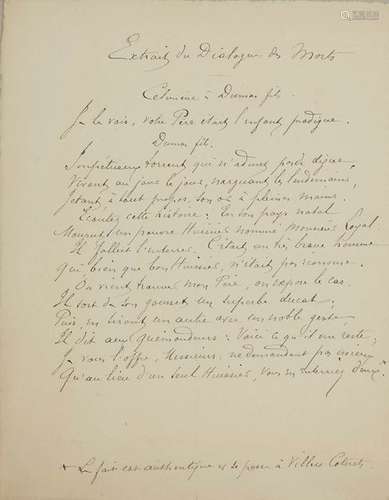 Extrait du Dialogue des Morts
Célimène à Dumas fils.
Je le vois, votre Père était l'enfant prodigue.
Dumas fils.
Impétueux torrent qui n'admet point digue,
Vivant au jour le jour, narguant les lendemains,
Jetant à tout propos, son or à pleines mains.
Écoutez cette histoire : En son pays natal
Mourut un pauvre Huissier nommé Monsieur Loyal.
Il fallut l'enterrer. C'était un très brave homme
Qui, bien que bon Huissier, n'était pas économe.
On vient trouver mon Père, on expose le cas.
Il sort de son gousset un superbe ducat.
Puis, en tirant un autre avec un noble geste,
Il dit aux quémandeurs : Voici ce qu'il me reste,
Je vous l'offre, Messieurs, ne demandant pas mieux
Qu'au lieu d'un seul Huissier, vous en enterriez deux.
Le fait est authentique et se passa à Villers Cotterets